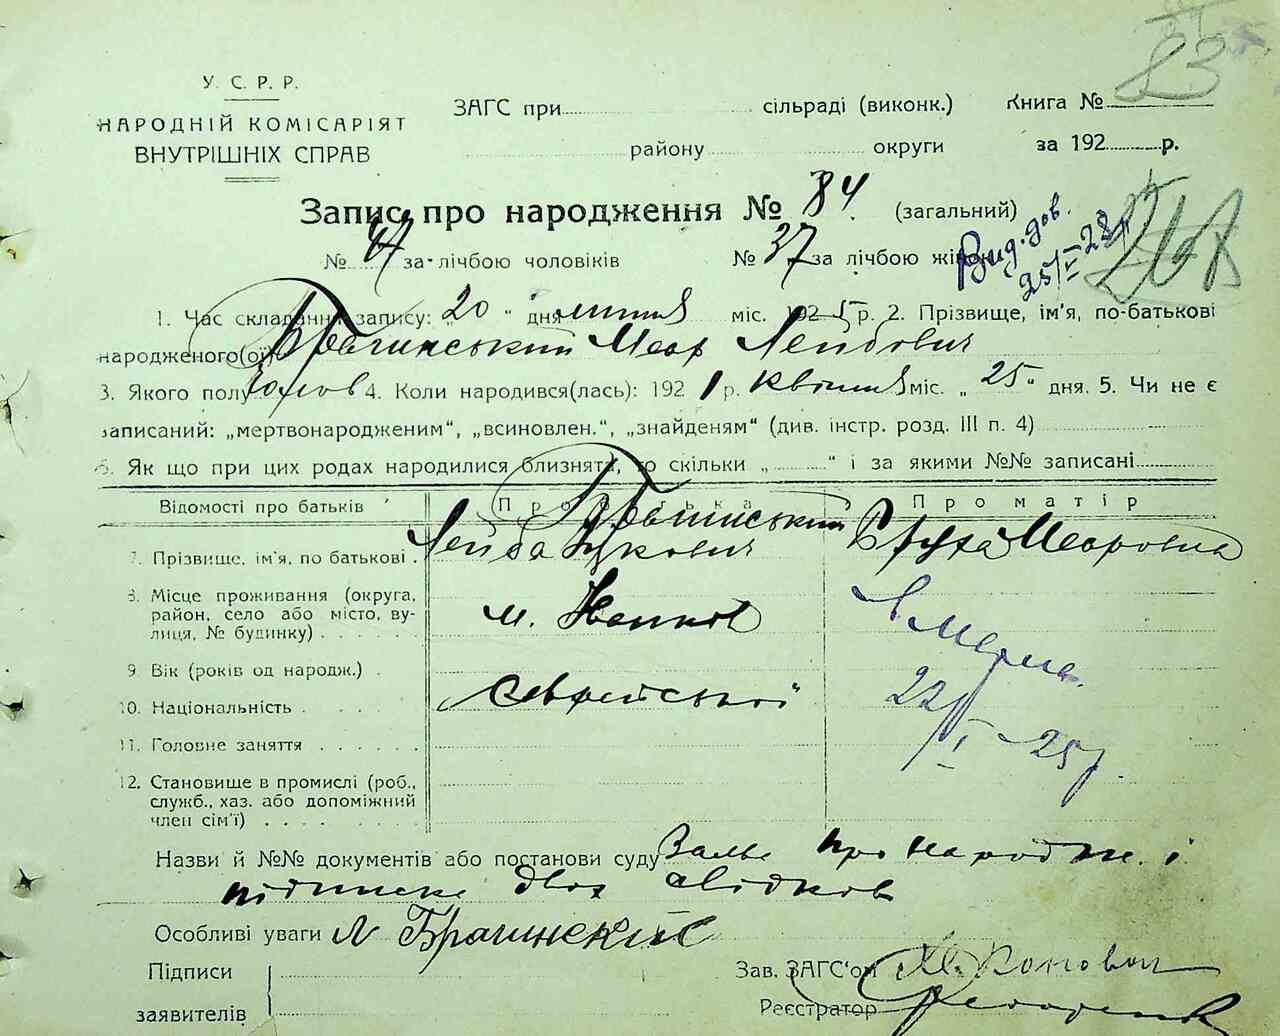 У. С. Р. Р.
НАРОДНІЙ КОМІСАРІЯТ
ВНУТРІШНІХ СПРАВ
ЗАГС при сільраді (виконк.) Книга № 83
району округи за 192 р.
Запис про народження № 84 (загальний)
№ 47 за лічбою чоловіків № 37 за лічбою жінок
Вид. дов.
268
1. Час складання запису: „ 20 “ дня лютня міс. 1925 р. 2. Прізвище, ім'я, по-батькові
народженого(ої) Меор Лейбович
3. Якого полу чолов 4. Коли народився(лась): 1921 р. квітня міс. „ 25 “ дня. 5. Чи не є
записаний: „мертвонародженим“, „всиновлен.“, „знайденям“ (див. інстр. розд. III п. 4)
6. Як що при цих родах народилися близнята, то скільки „ “ і за якими №№ записані
Відомості про батьків Про батька Про матір
7. Прізвище, ім'я, по батькові Лейба Ицкович Меоровна
8. Місце проживання (округа,
район, село або місто, ву-
лиця, № будинку) м. Іванков
9. Вік (років од народж.)
10. Національність Єврейської
11. Головне заняття
12. Становище в промислі (роб.,
служб., хаз. або допоміжний
член сім'ї)
Назви й №№ документів або постанови суду Заява про народж. і
підписке двох свідков
Особливі уваги Л Брагинский
Підписи
заявителів
Зав. ЗАГС'ом
Реєстратор